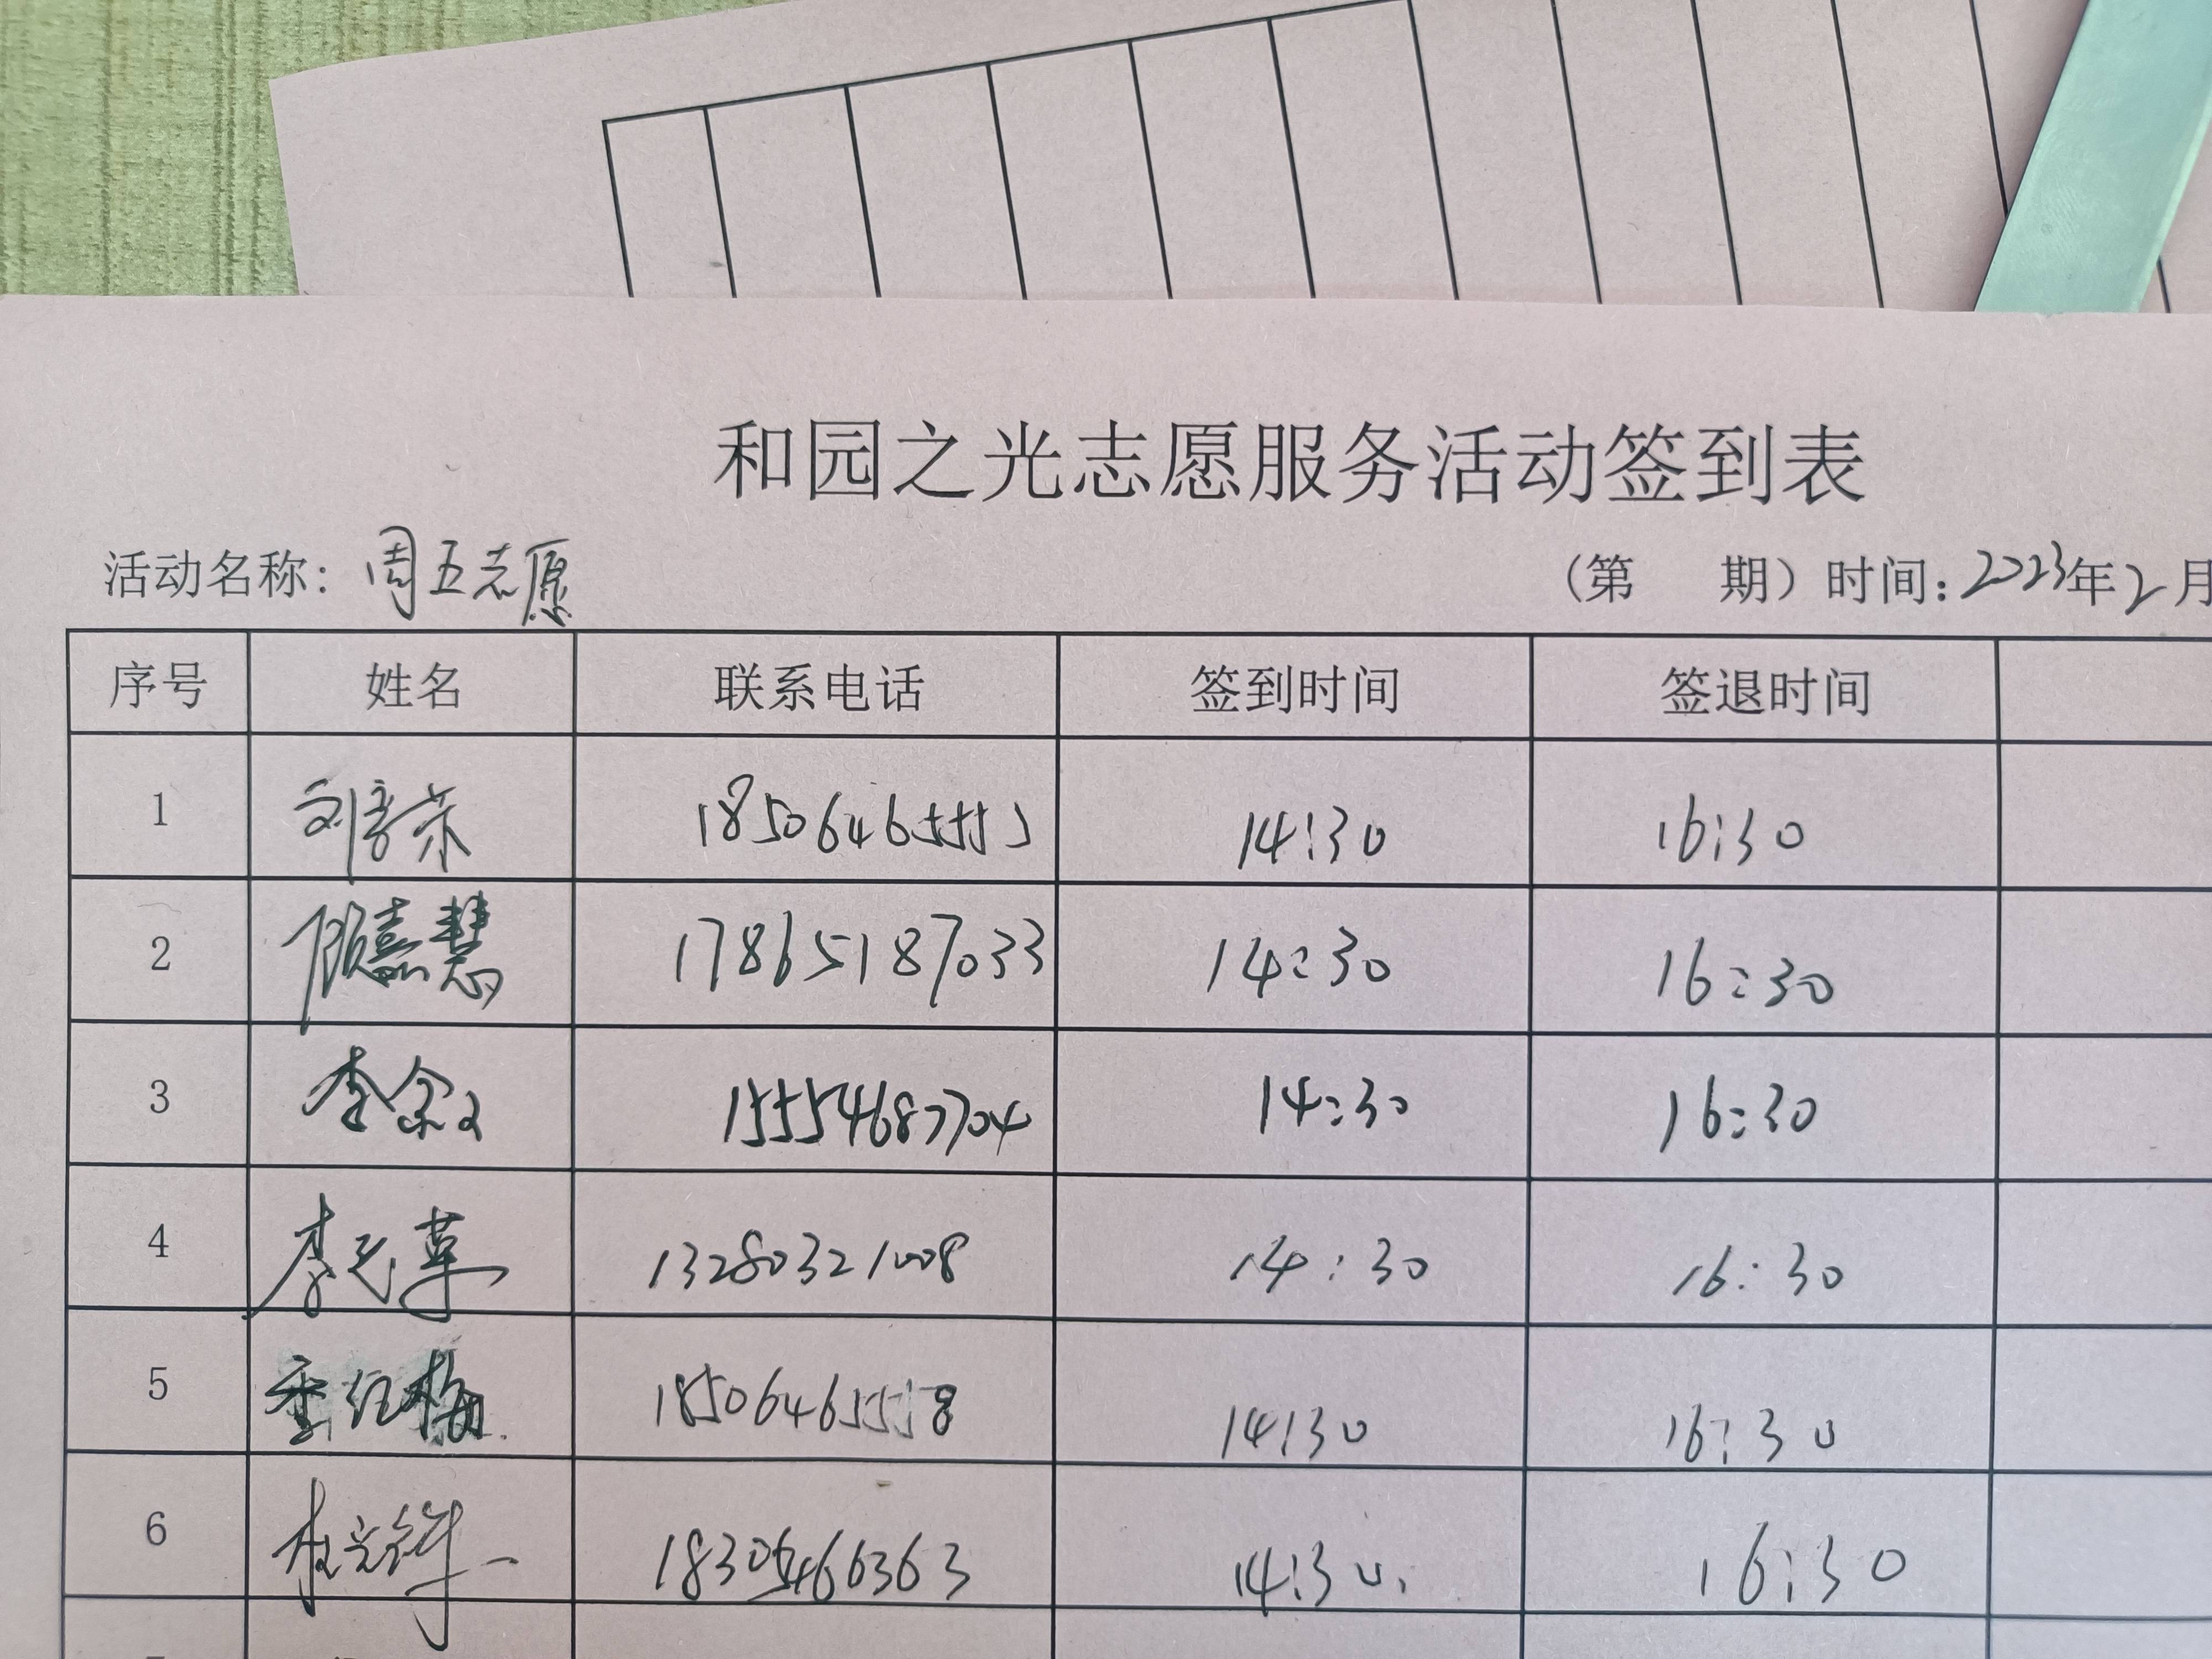 和园之光志愿服务活动签到表
活动名称：周五志愿 （第 期）时间：2023年2月
序号 姓名 联系电话 签到时间 签退时间
1 14:30 16:30
2 顾嘉慧 17865187033 14:30 16:30
3 15554687704 14:30 16:30
4 13280321008 14:30 16:30
5 季红梅 14:30 16:30
6 18305466363 14:30 16:30